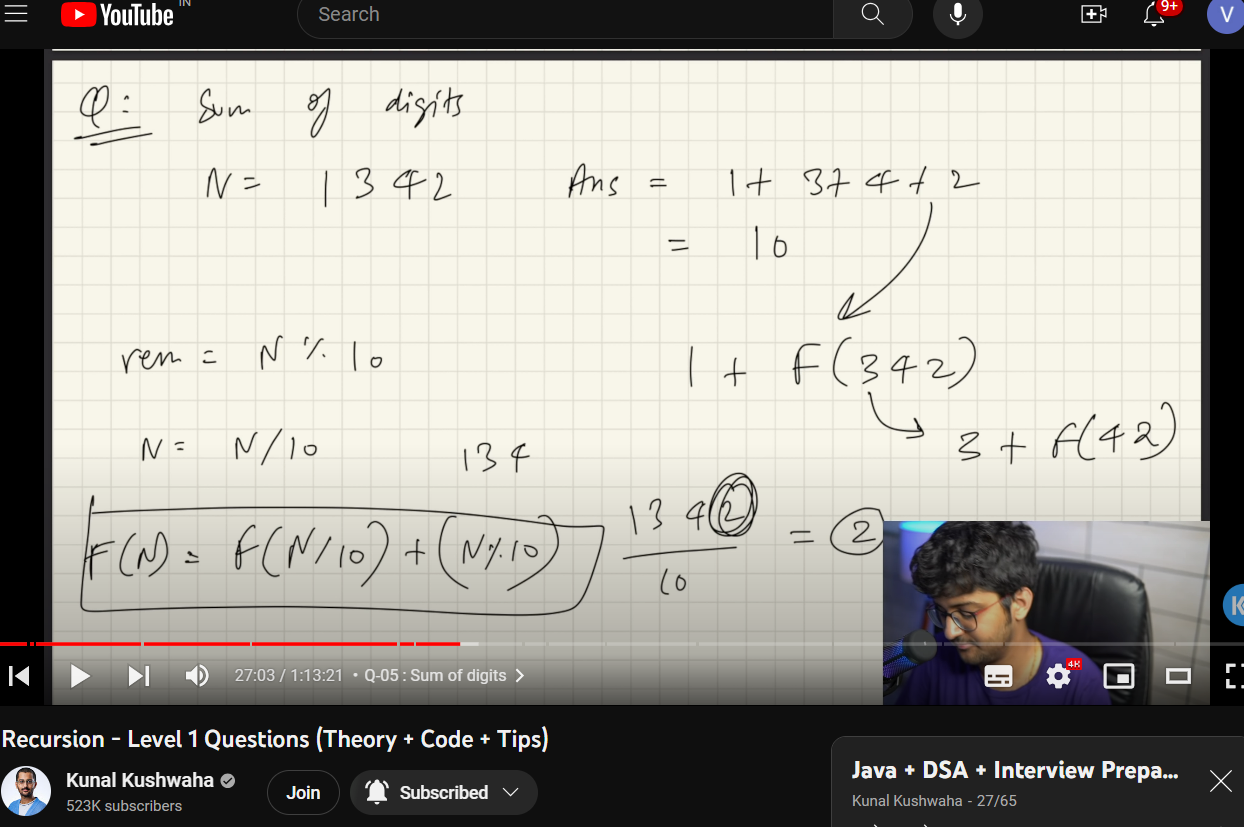 YouTube IN
Search
9+
V
Q: Sum of digits
N = 1 3 4 2 Ans = 1 + 3 + 4 + 2
= 10
rem = N % 10 1 + F(342)
N = N/10 134 3 + F(42)
F(N) = F(N/10) + (N%10) 1342 = 2
10
K
27:03 / 1:13:21 • Q-05 : Sum of digits
4K
Recursion - Level 1 Questions (Theory + Code + Tips)
Kunal Kushwaha
523K subscribers
Join
Subscribed
Java + DSA + Interview Prepa...
Kunal Kushwaha - 27/65